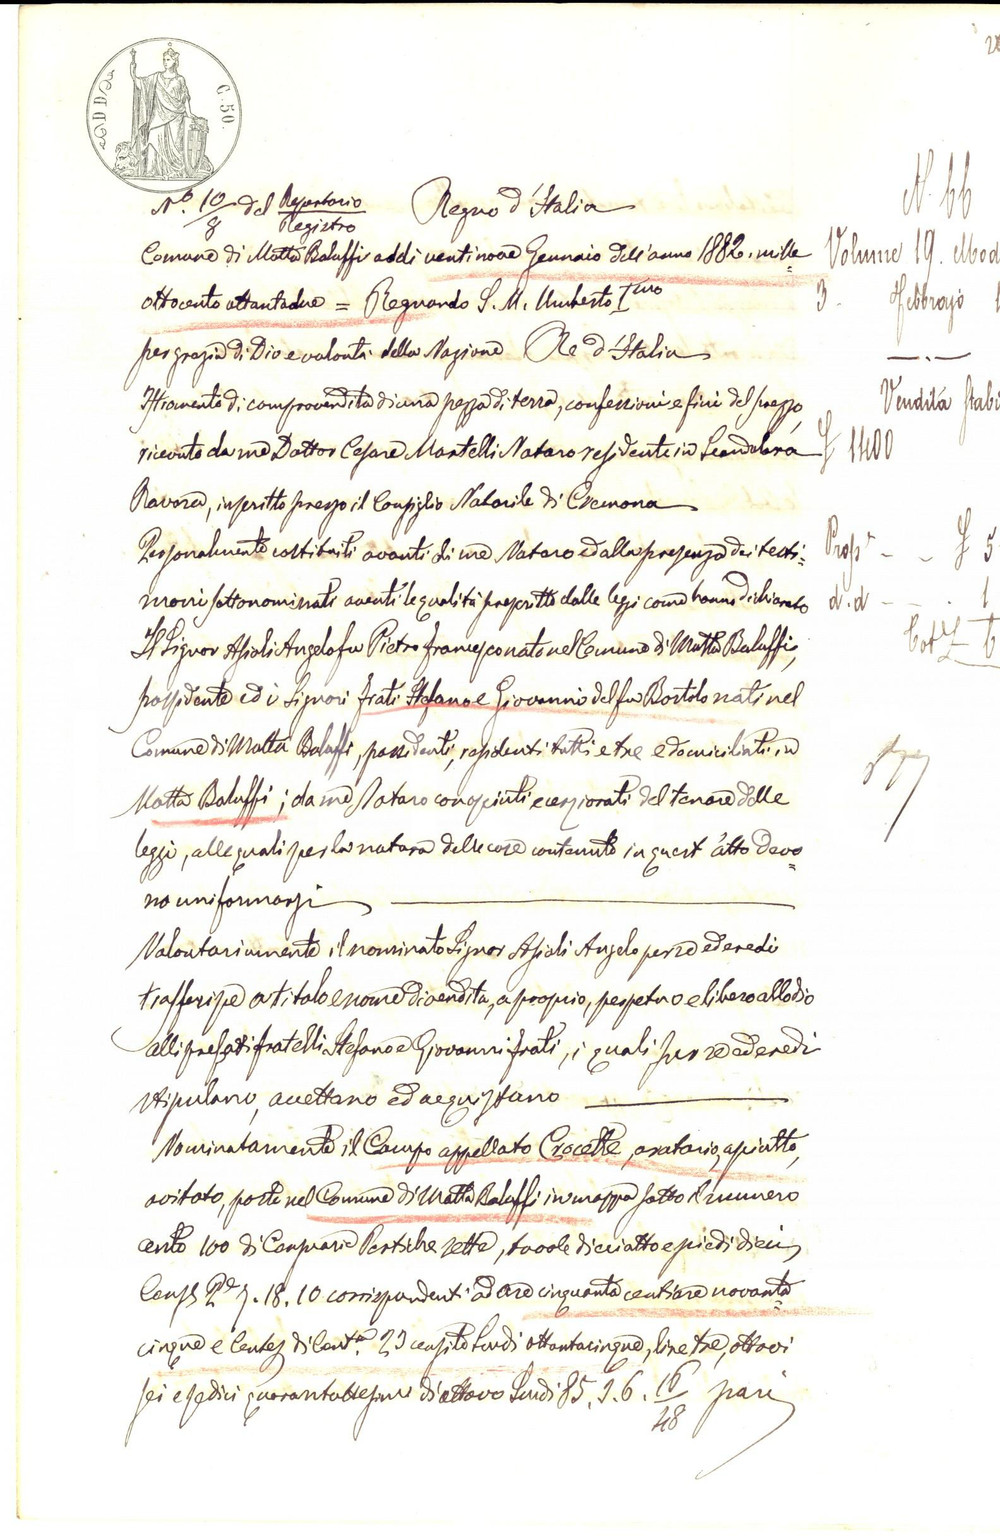 C. 50.
N.° 10/8 del Repertorio Registro Regno d'Italia
Comune di Motta Baluffi addi ventinove Gennaio dell'anno 1882. mille
ottocento ottantadue = Regnando S. M. Umberto I.mo
per grazia di Dio e volontà della Nazione Re d'Italia
Istromento di compravendita di una pezza di terra, confessioni e fini del prezzo,
ricevuto da me Dottor Cesare Martelli Notaro residente in Scandolara
Ravara, inscritto presso il Consiglio Notarile di Cremona
Personalmente costituiti avanti di me Notaro ed alla presenza dei testi=
moni sottonominati aventi le qualità prescritte dalle leggi come hanno dichiarato
Il Signor Asioli Angelo fu Pietro Francesco nato nel Comune di Motta Baluffi,
possidente ed i Signori frati Stefano e Giovanni del fu Bortolo nati nel
Comune di Motta Baluffi, possidenti, residenti tutti e tre e domiciliati in
Motta Baluffi; da me Notaro conosciuti e cerziorati del tenore delle
leggi, alle quali per la natura delle cose contenute in quest'atto devo=
no uniformarsi
Volontariamente il nominato Signor Asioli Angelo per se ed eredi
trasferisce a titolo e nome di vendita, a proprio, perpetuo e libero allodio
alli prefati fratelli Stefano e Giovanni frati, i quali per se ed eredi
stipulano, accettano ed acquistano
Nominatamente il Campo appellato Crocette, aratorio, a piatto,
avitato, posto nel Comune di Motta Baluffi in mappa sotto il numero
cento 100 di Censuarie Pertiche sette, tavole dieciotto e piedi dieci
Cens.e P.e 7. 18. 10 corrispondenti ad are cinquanta centiare novanta=
cinque e Centes. di Cent.a 23 censito scudi ottantacinque, lire tre, ottavi
sei e sedici quarantottesimi di ottavo Scudi 85. 3. 6. 16/48 pari
N. 66
Volume 19. Mod
3. Febbrajo 1
Vendita Stabi
£ 1400
Prop.le - - £ 5
d.d - - . 1
Tot.le £ 6